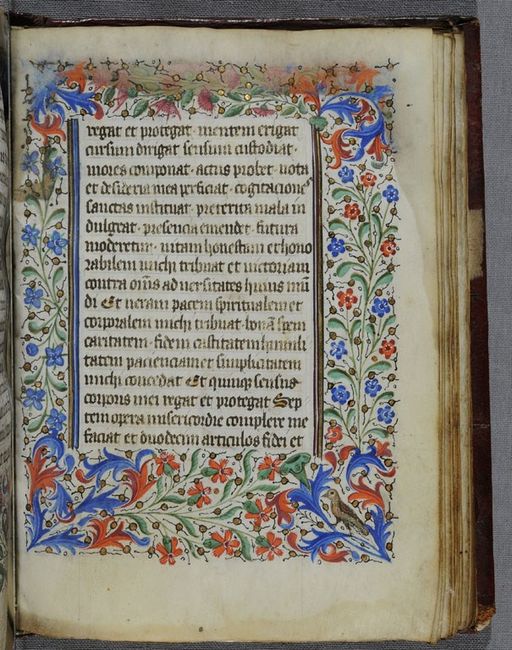 regat et protegat · mentem erigat
cursum dirigat sensum custodiat ·
mores componat · actus probet · uota
et desideria mea perficiat · cogitacione⁹
sanctas instituat · preterita mala in
dulgeat · presencia emendet · futura
moderetur · uitam honestam et hono
rabilem michi tribuat et uictoriam
contra om̄s aduersitates huius mū
di Et ueram pacem spiritualem et
corporalem michi tribuat · bonā spem
caritatem · fidem castitatem humili
tatem pacienciam et simplicitatem
michi concedat Et quinque sensus
corporis mei regat et protegat Sep
tem opera misericordie complere me
faciat et duodecim articulos fidei et